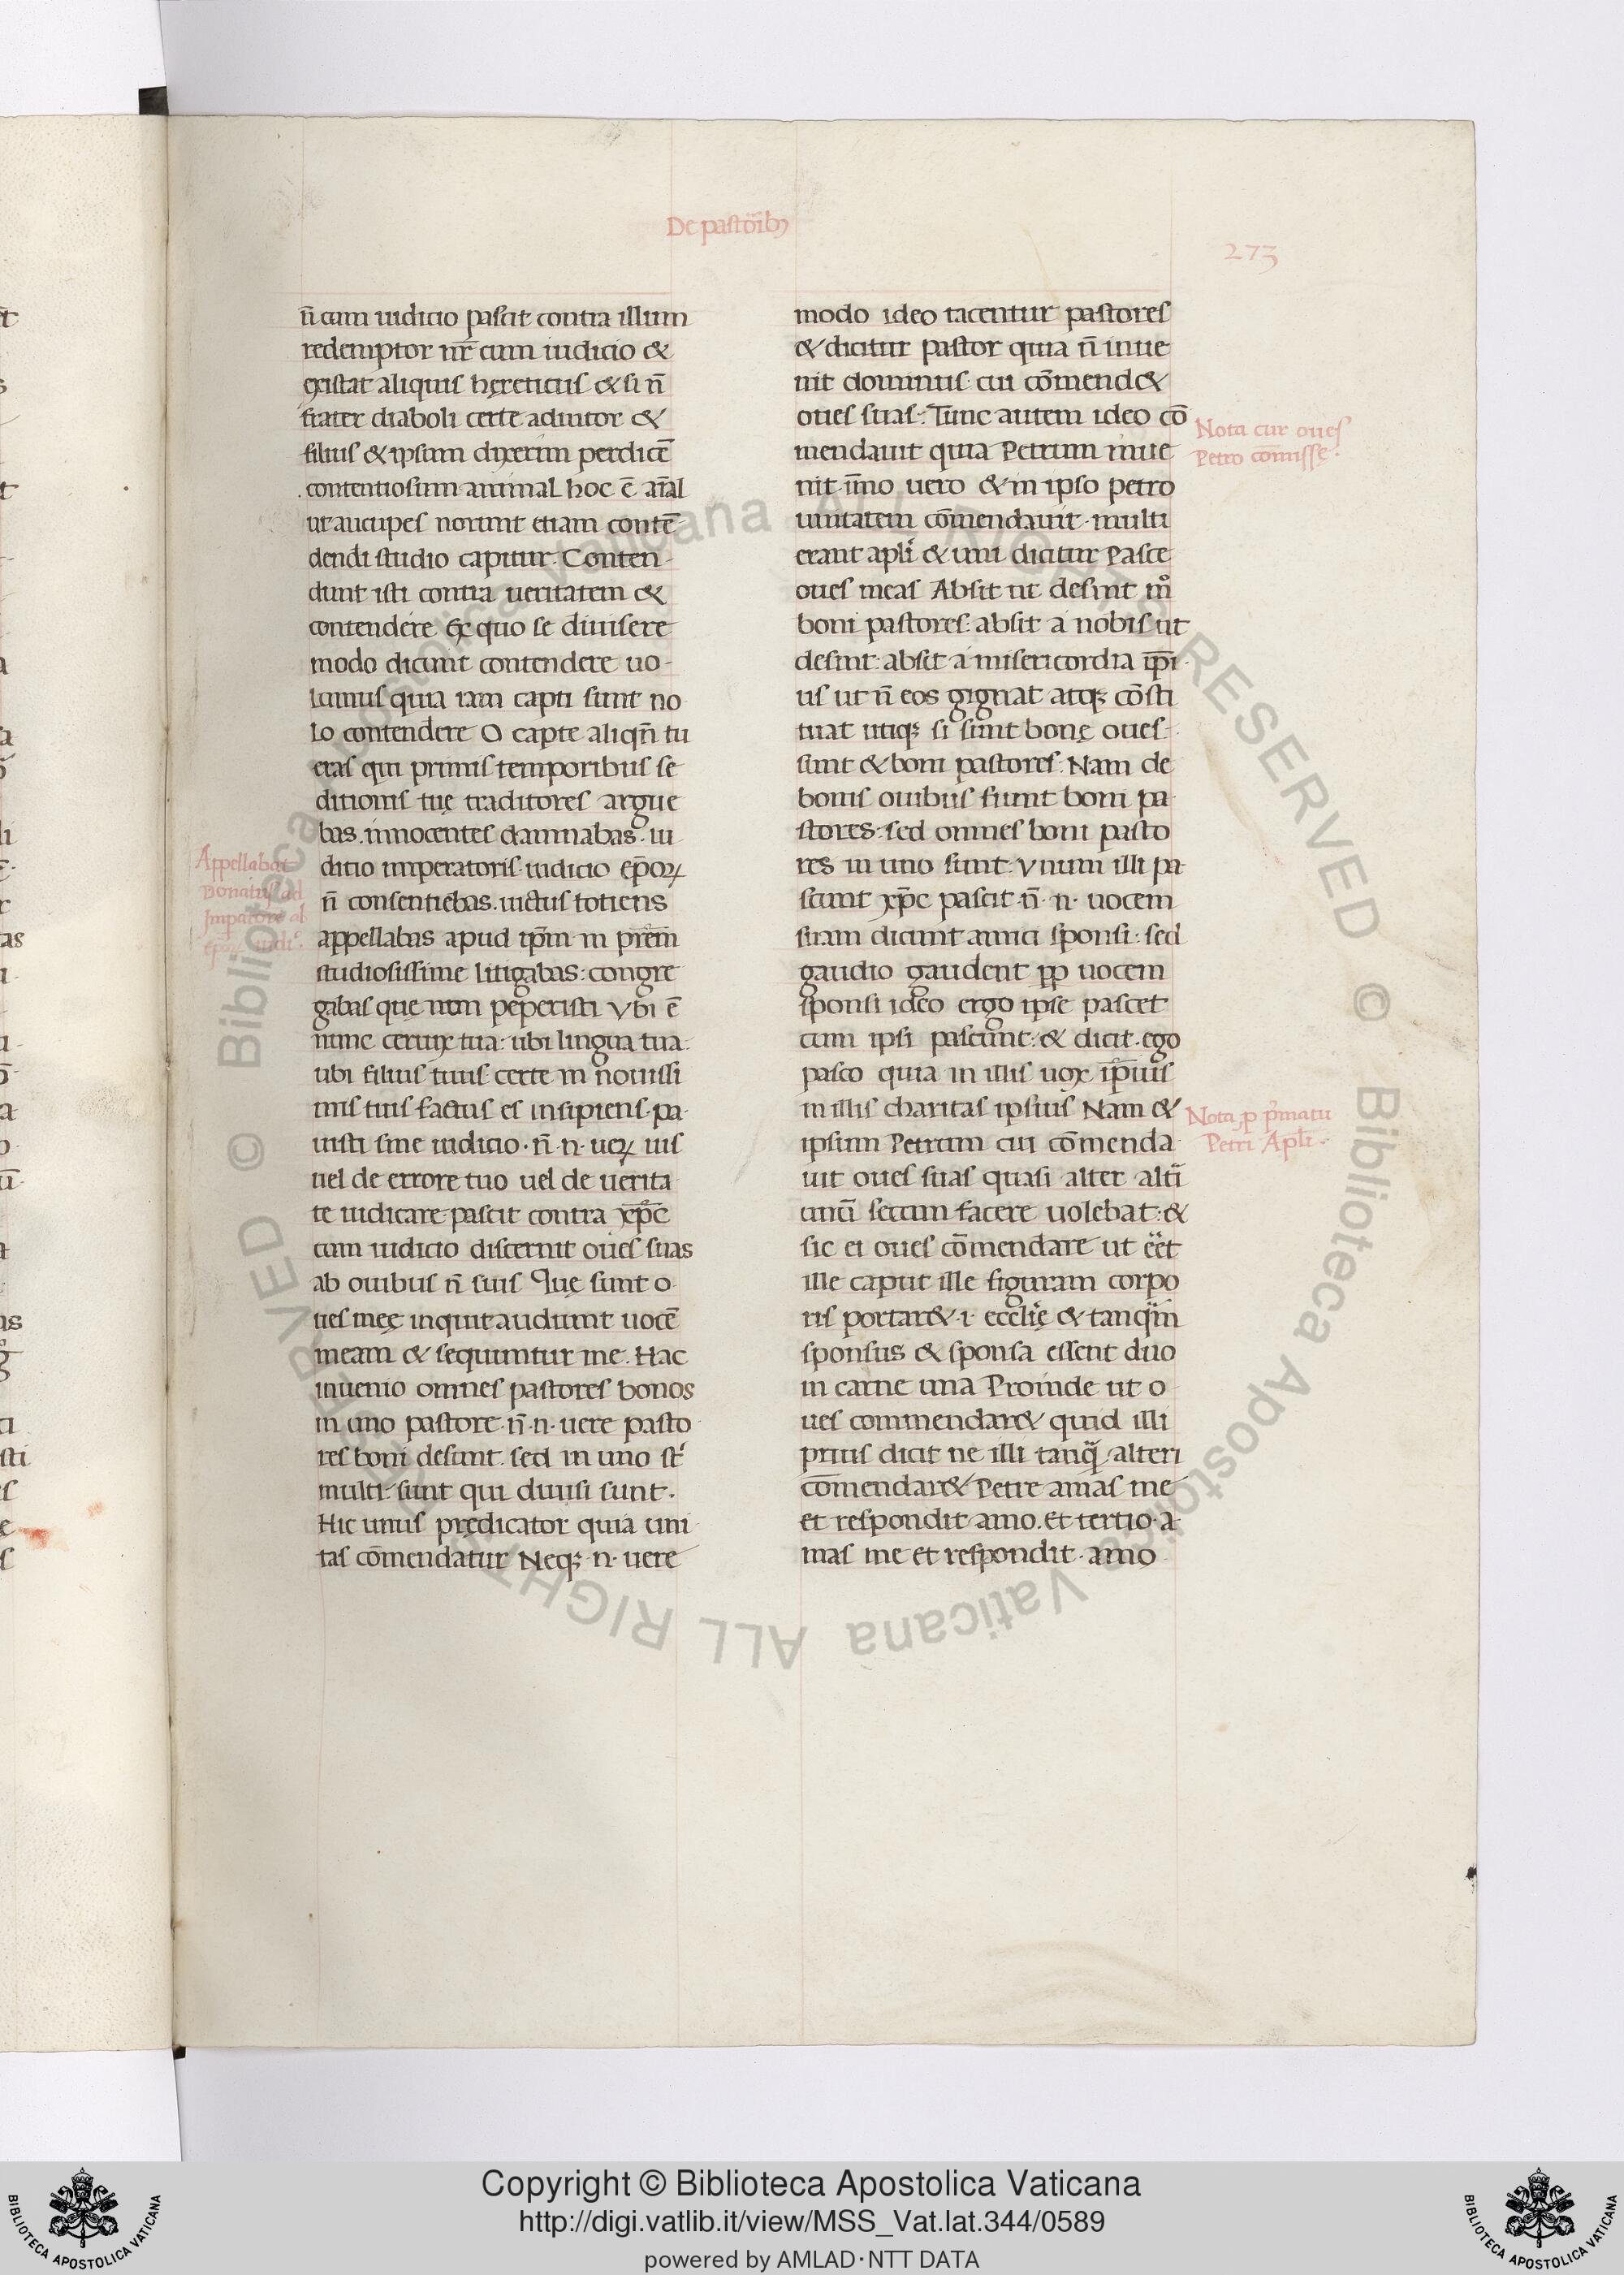 De pastoribꝫ
273
n̄ cum iudicio pascit contra illum
redemptor nr̄ cum iudicio &
existat aliquis hęreticus & si n̄
frater diaboli certe adiutor &
filius & ipsum dixerim perdicē
contentiosum animal hoc ē aīal
ut aucupes norunt etiam contē-
dendi studio capitur. Conten-
dunt isti contra ueritatem &
contendere Ex quo se diuisere
modo dicunt contendere uo-
lumus quia iam capti sunt no
lo contendere O capte aliqn̄ tu
eras qui primis temporibus se
ditionis tuę traditores argue
bas. innocentes damnabas. iu
ditio imperatoris. iudicio ep̄oꝝ
n̄ consentiebas. uictus totiens
appellabas apud ip̄m Im prem
studiosissime litigabas: congre
gabas quę non peperisti Vbi ē
nunc ceruix tua: ubi lingua tua:
ubi filius tuus certe in nouissi
mis tuis factus es insipiens. pa-
uisti sine iudicio. n̄. n. ueꝝ uis
uel de errore tuo uel de uerita
te iudicare pascit contra xp̄c
cum iudicio discernit oues suas
ab ouibus n̄ suis Quę sunt o
ues meę inquit audiunt uocē
meam & sequuntur me. Hac
inuenio omnes pastores bonos
in uno pastore. n̄. n. uere pasto
res boni desunt. sed in uno st̄
multi. sunt qui diuisi sunt.
Hic unus prędicator quia uni
tas cōmendatur Neqꝫ. n. uere
Appellabat
Donatus ad
Impatore ab
modo ideo tacentur pastores
& dicitur pastor quia n̄ inue
nit dominus cui cōmend&
oues suas: Tunc autem ideo cō
mendauit quia Petrum inue
nit īmo uero & in ipso petro
unitatem cōmendauit. multi
erant apl̄i & uni dicitur Pasce
oues meas Absit ut desint m̊
boni pastores: absit a nobis ut
desint: absit a misericordia ip̄i
us ut n̄ eos gignat atqꝫ cōsti
tuat utiqꝫ si sunt bonę oues.
sunt & boni pastores. Nam de
bonis ouibus fiunt boni pa
stores: sed omnes boni pasto
res in uno sunt. Vnum illi pa
scunt xp̄c pascit. n̄. n. uocem
suam dicunt amici sponsi: sed
gaudio gaudent ꝓp uocem
sponsi ideo ergo ipse pascet
cum ipsi pascunt: & dicit. ego
pasco quia in illis uox ip̄ius
in illis charitas ipsius Nam &
ipsum Petrum cui cōmenda
uit oues suas quasi alter alti
unū secum facere uolebat: &
sic ei oues cōmendare ut eet
ille caput ille figuram corpo
ris portar& .i. ecclię & tanq̄m
sponsus & sponsa essent duo
in carne una Proinde ut o
ues commendar& quid illi
prius dicit ne illi tanq̄ alteri
cōmendar& Petre amas me
et respondit amo. Et tertio a
mas me et respondit. amo
Nota cur oues
Petro com̄issę.
Nota ꝓ pͥmatu
Petri Apl̄i.
© Biblioteca Apostolica Vaticana ALL RIGHTS RESERVED
© Biblioteca Apostolica Vaticana ALL RIGHTS RESERVED
Copyright © Biblioteca Apostolica Vaticana
http://digi.vatlib.it/view/MSS_Vat.lat.344/0589
powered by AMLAD·NTT DATA
BIBLIOTECA APOSTOLICA VATICANA
BIBLIOTECA APOSTOLICA VATICANA